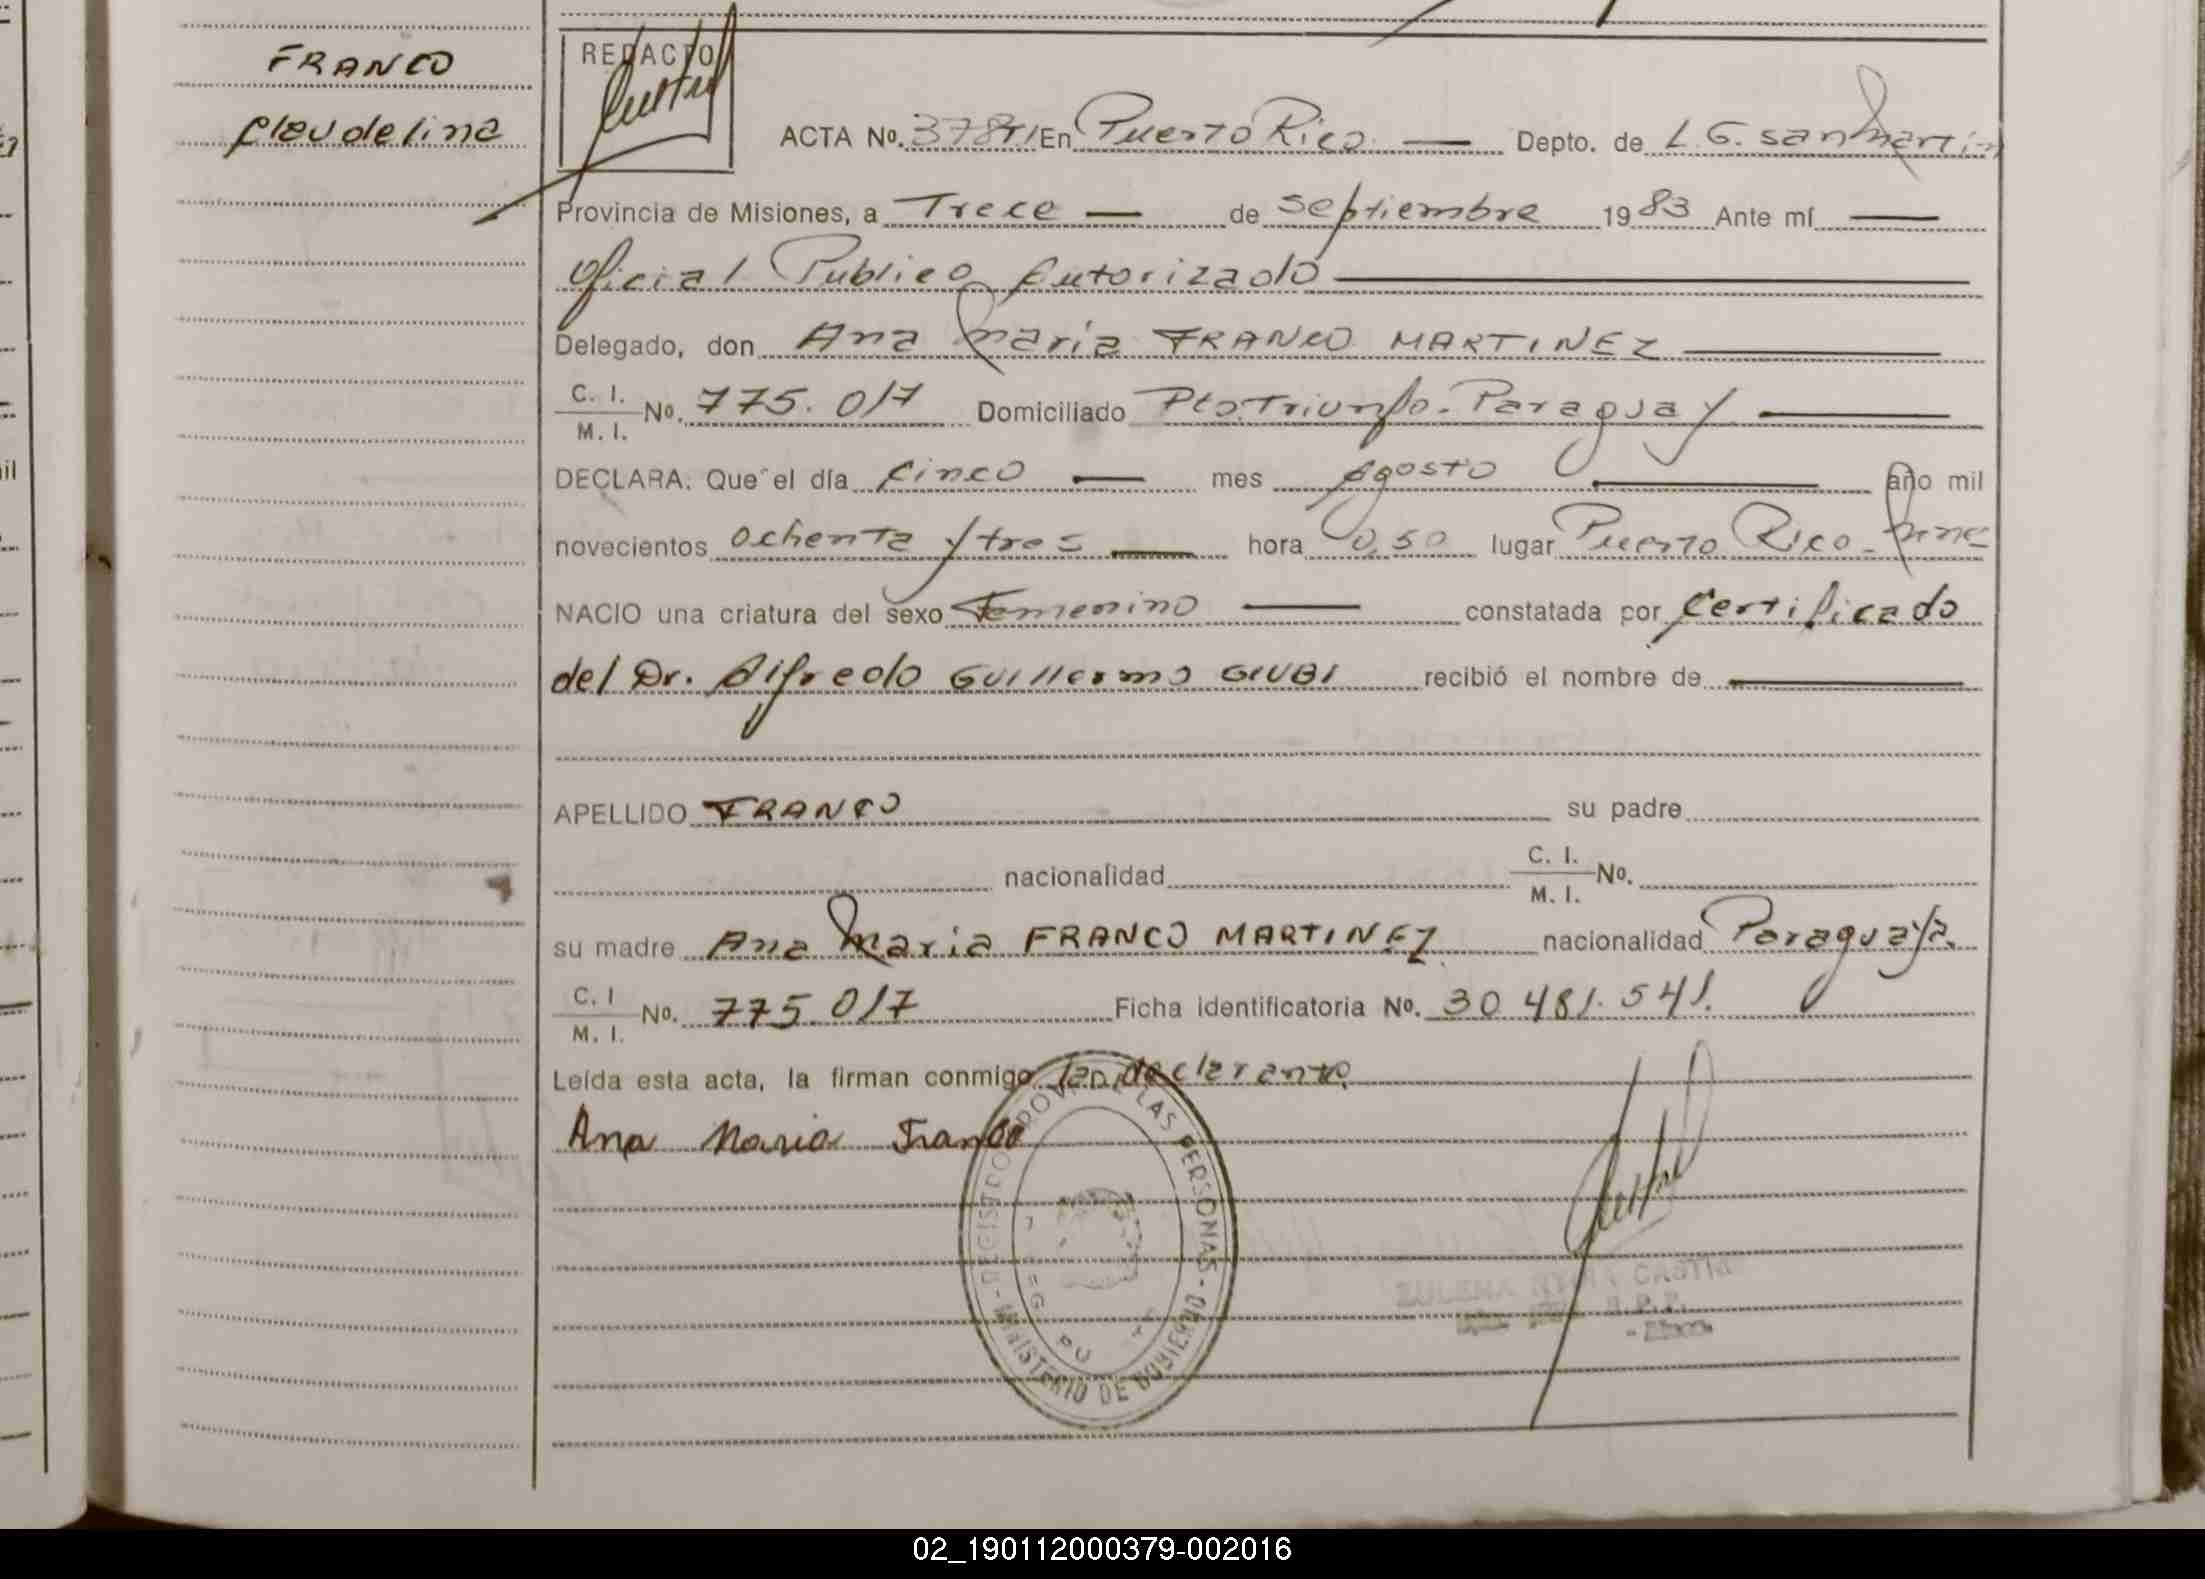 FRANCO
Claudelina
REDACTO
ACTA No. 378 TI En Puerto Rico Depto. de L. G. San Martin
Provincia de Misiones, a Trece de Septiembre 1983 Ante mí
Oficial Publico Autorizado
Delegado, don Ana Maria FRANCO MARTINEZ
C. I.
M. I. No. 775.017 Domiciliado Pto. Triunfo - Paraguay
DECLARA: Que el día Cinco mes Agosto año mil
novecientos Ochenta y tres hora 0,50 lugar Puerto Rico -
NACIO una criatura del sexo Femenino constatada por Certificado
del Dr. Alfredo Guillermo GIUBI recibió el nombre de
APELLIDO FRANCO su padre
nacionalidad C. I.
M. I. No.
su madre Ana Maria FRANCO MARTINEZ nacionalidad Paraguaya.
C. I
M. I. No. 775 017 Ficha identificatoria No. 30 481.541.
Leída esta acta, la firman conmigo la declarante.
Ana Maria Franco
PROV. DE LAS PERSONAS - MINISTERIO DE GOBIERNO -
02_190112000379-002016